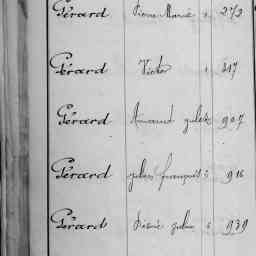 Gérard Pierre Marie 272
Gérard Victor 817
Gérard Amand Jules 907
Gérard Jules françois 916
Gérard Désiré Jules 939